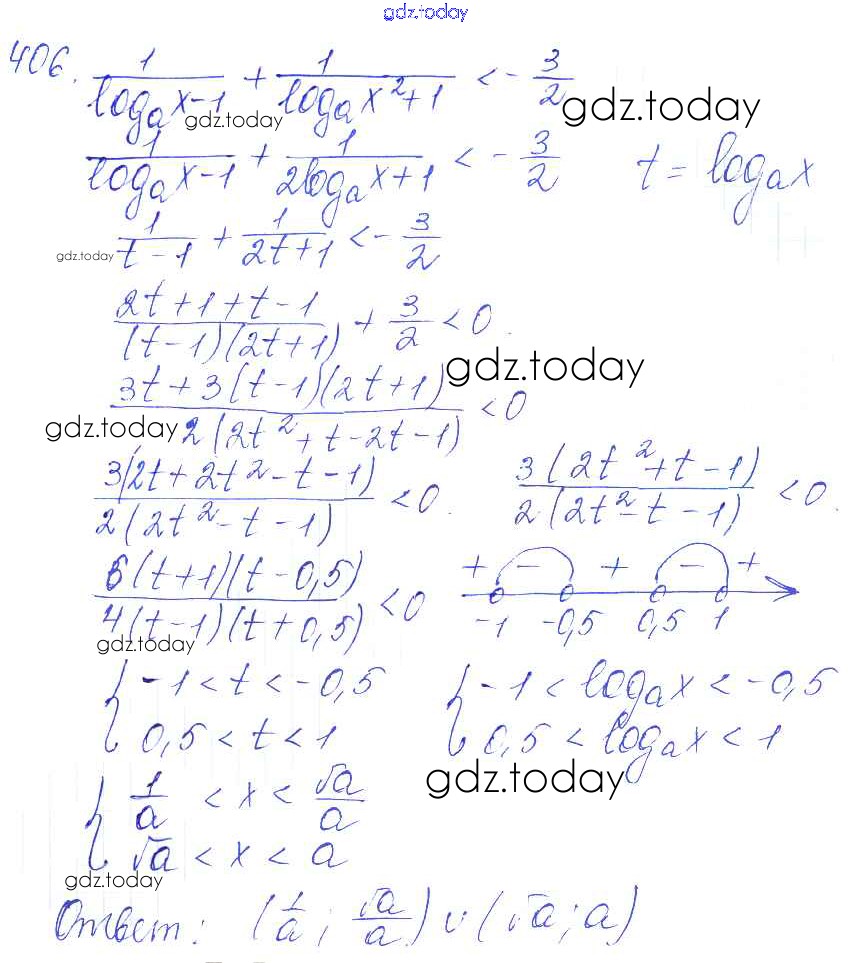 gdz.today
406. 1/(logₐx-1) + 1/(logₐx²+1) < -3/2
gdz.today gdz.today
1/(logₐx-1) + 1/(2logₐx+1) < -3/2 t = logₐx
gdz.today 1/(t-1) + 1/(2t+1) < -3/2
(2t+1+t-1)/((t-1)(2t+1)) + 3/2 < 0.
gdz.today
(3t+3(t-1)(2t+1))/(2(2t²+t-2t-1)) < 0
gdz.today
3(2t+2t²-t-1)/(2(2t²-t-1)) < 0. 3(2t²+t-1)/(2(2t²-t-1)) < 0.
6(t+1)(t-0,5)/(4(t-1)(t+0,5)) < 0 + - + - +
-1 -0,5 0,5 1
gdz.today
{ -1 < t < -0,5 { -1 < logₐx < -0,5
0,5 < t < 1 0,5 < logₐx < 1
gdz.today
{ 1/a < x < √a/a
√a < x < a
gdz.today
Ответ: (1/a; √a/a) ∪ (√a; a)